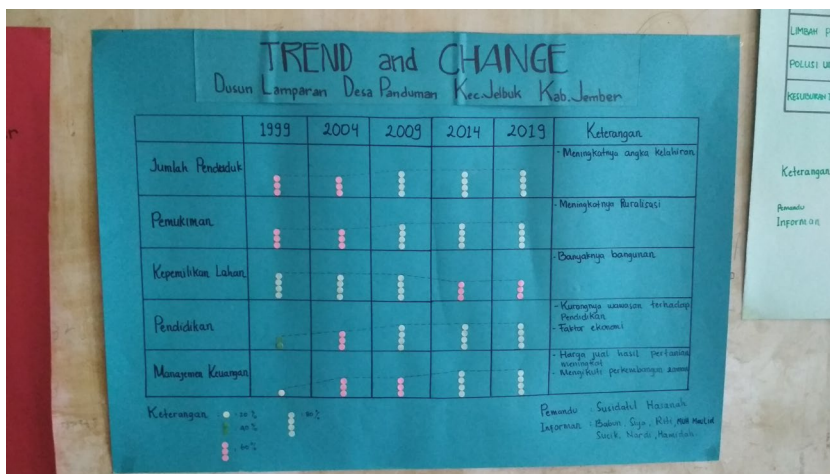 TREND and CHANGE
Dusun Lamparan Desa Panduman Kec.Jelbuk Kab.Jember
1999 2004 2009 2014 2019 Keterangan
Jumlah Penduduk - Meningkatnya angka kelahiran
Pemukiman - Meningkatnya Ruralisasi
Kepemilikan Lahan - Banyaknya bangunan
Pendidikan - Kurangnya wawasan terhadap
Pendidikan
- Faktor ekonomi
Manajemen Keuangan - Harga jual hasil pertanian
meningkat
- Mengikuti perkembangan zaman
Keterangan :
Pemandu : Susidatil Hasanah
Informan :
Sucik, Nardi, Hamidah
LIMBAH P
POLUSI U
Keterangan
Pemandu
Informan